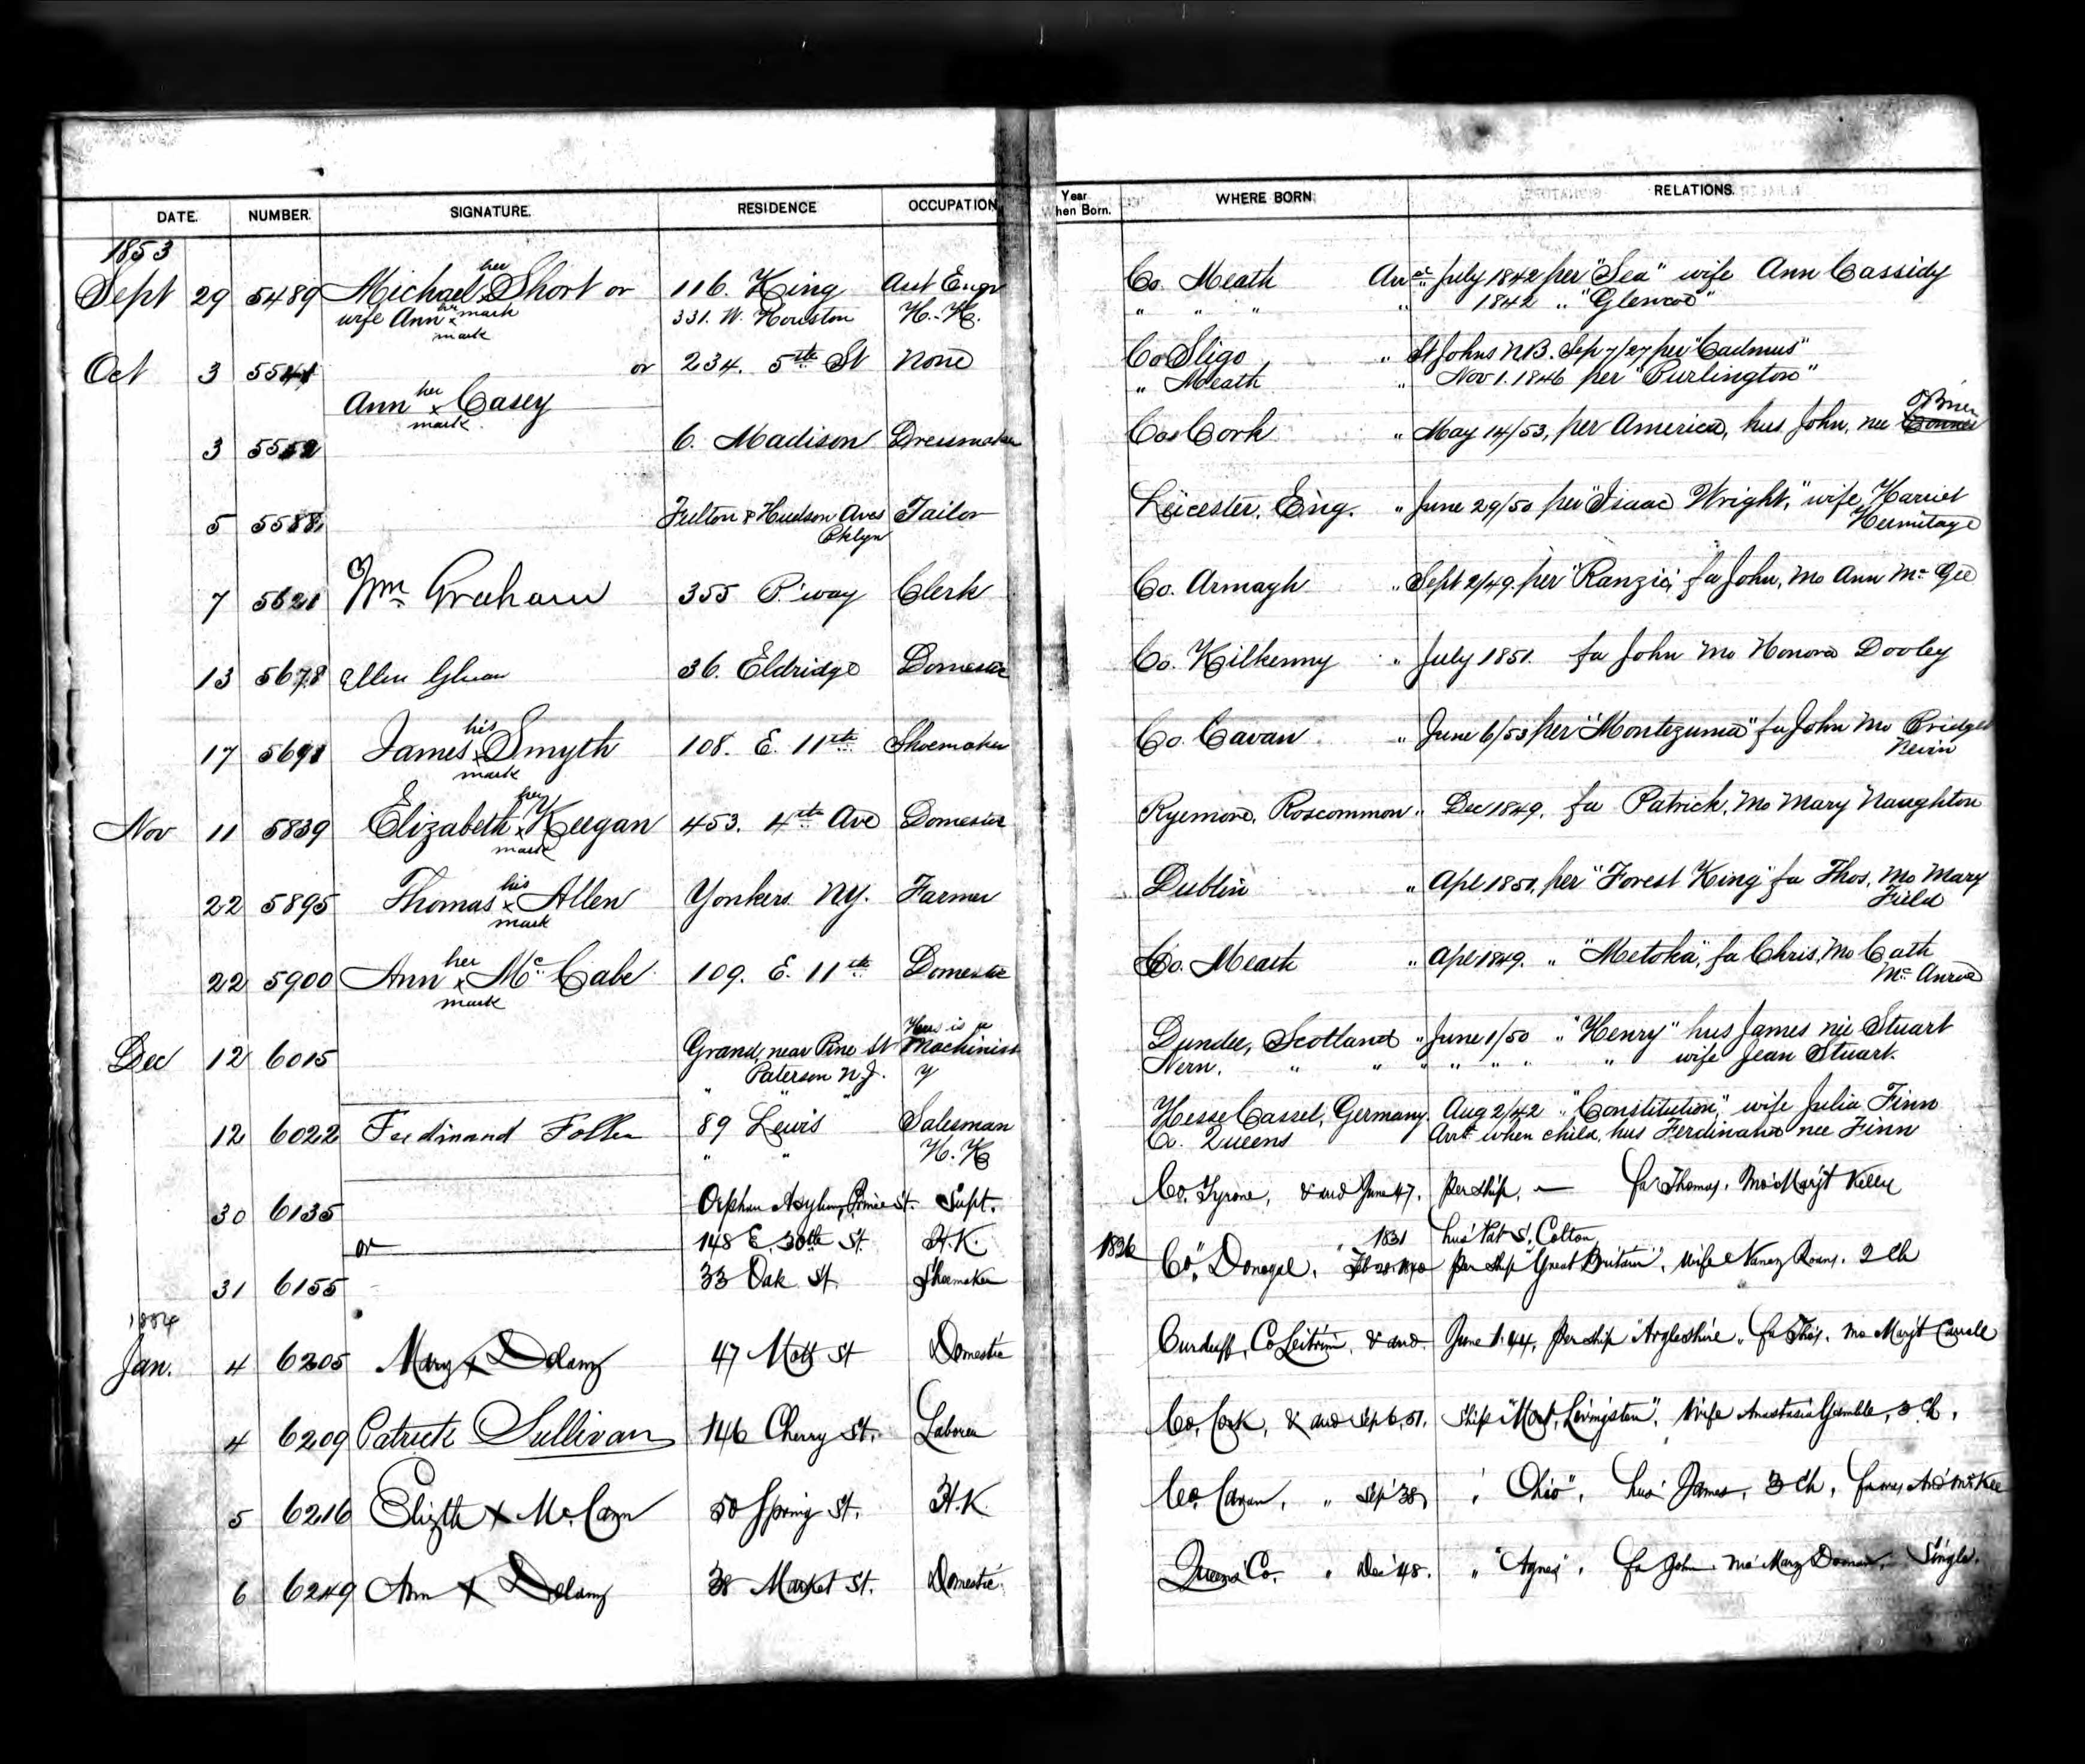 DATE. NUMBER. SIGNATURE. RESIDENCE OCCUPATION Year When Born. WHERE BORN. RELATIONS.
1853
Sept 29 5489 Michael her Short or 116. King Co. Meath Arr July 1842 per "Sea" wife Ann Cassidy
wife Ann x mark 331. W. Houston H. K. " " " " 1842 " "Glencoe"
mark
Oct 3 5541 or 234. 5th St None Co Sligo " St Johns N.B. Sep 7/27 per "Cadmus"
" Meath " Nov 1. 1846 per "Burlington"
Ann her x Casey
mark
3 5552 6. Madison Dressmaker Co. Cork " May 14/53, per America, hus John, nee O'Brien
5 5588 Fulton & Hudson Aves Tailor Leicester, Eng. " June 29/50 per "Isaac Wright," wife Harriet
Bklyn Hermitage
7 5621 Wm Graham 355 B'way Clerk Co. Armagh " Sept 2/49 per fa John, Mo Ann McGee
13 5678 Ellen 36. Eldridge Domestic Co. Kilkenny " July 1851. fa John Mo Honora Dooley
17 5691 James his x Smyth 108. E. 11th Shoemaker Co. Cavan " June 6/53 per "Montezuma" fa John Mo Bridget
mark Nevin
Nov 11 5839 Elizabeth her x Keegan 453. 4th Ave Domestic Roscommon " Dec 1849. fa Patrick, Mo Mary Naughton
mark
22 5895 Thomas his x Allen Yonkers N.Y. Farmer Dublin " Apl 1851, per "Forest King" fa Thos, Mo Mary
mark Field
22 5900 Ann her x McCabe 109. E. 11th Domestic Co. Meath " Apl 1849. " "Metoka", fa Chris, Mo Cath
mark
Dec 12 6015 Grand, near Pine St Hus is a Machinist Dundee, Scotland " June 1/50 " "Henry" hus James nee Stuart
Paterson N.J. " " " " " " " wife Jean Stuart.
12 6022 Ferdinand 89 Lewis Salesman Hesse Cassel, Germany. Aug 2/42 " "Constitution", wife Julia Finn
" " H. K Co. Queens Arrd when child, hus Ferdinand nee Finn
30 6135 Orphan Asylum, Prince St. Supt. Co. Tyrone, & arrd June 47. per ship. — fa Thomas. Mo Marg't Kelly
or 148 E. 30th St. H. K. 1831 hus Pat S. Colton
31 6155 33 Oak St. Shoemaker 1826 Co. Donegal, per ship "Great Britain", wife Nancy 2 Ch
1854
Jan. 4 6205 Mary x Delany 47 Mott St Domestic Co Leitrim, & arrd. June 1. 44, per ship fa Thos. mo Marg't
4 6209 Patrick Sullivan 146 Cherry St. Laborer Co. Cork, & arrd Sep 6, 51. ship "Mort. Livingston", wife Anastasia Gamble, 3 Ch,
5 6216 Elizth x McCann 50 Spring St. H. K. Co. Cavan, " Sep '38, " Ohio", hus James, 3 Ch,
6 6249 Ann x Delany 38 Market St. Domestic. Queens Co. " Dec '48. " "Agnes", fa John. mo Mary Single.